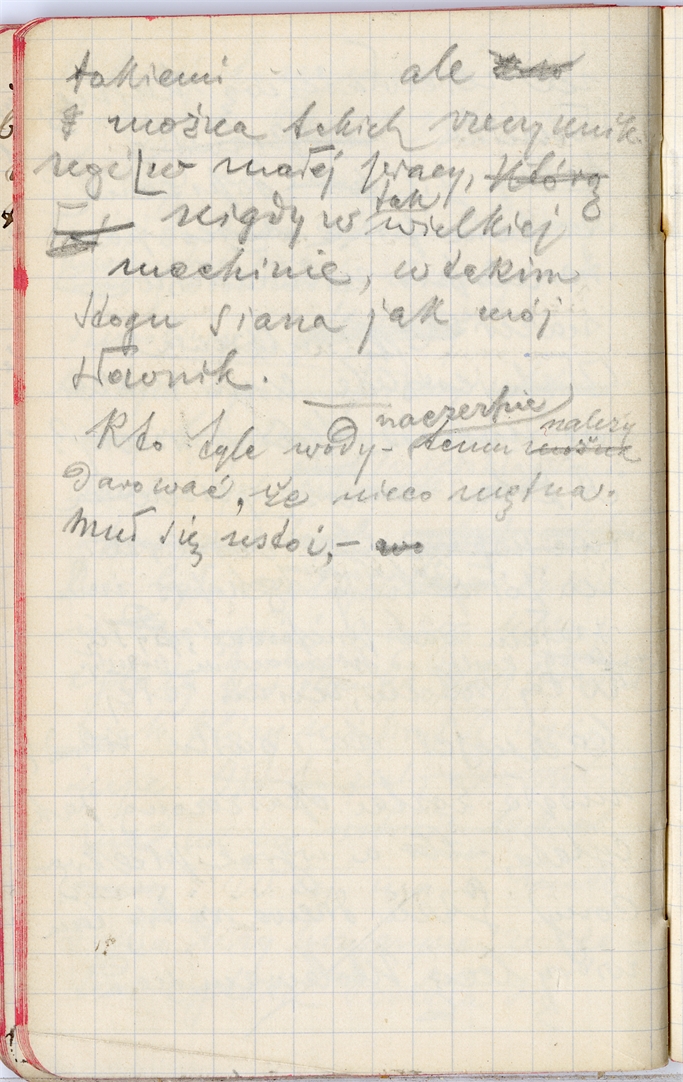 takiemi ale
I można takich rzeczy unik
nąć w małej pracy, którą
nigdy w tak wielkiej
machinie, w takim
stogu siana jak mój
słownik.
Kto tyle wody naczerpie - temu można należy
darować, że nieco mętna.
Muł się ustoi, -